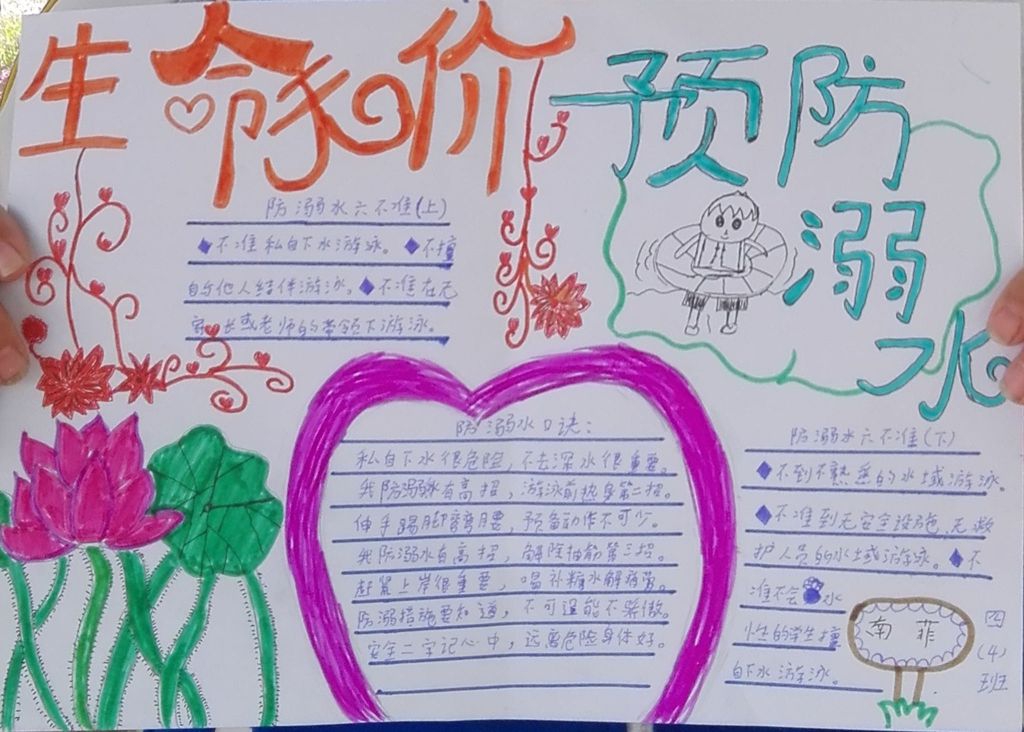 生命和价
预防
溺
水
防溺水六不准(上)
◆不准私自下水游泳。◆不擅
自与他人结伴游泳。◆不准在无
家长或老师的带领下游泳。
防溺水口诀:
私自下水很危险,不去深水很重要。
我防溺水有高招,游泳前热身第二招。
伸手踢脚弯弯腰,预备动作不可少。
我防溺水有高招,解除抽筋第三招。
赶紧上岸很重要,喝补糖水解疲劳。
防溺措施要知道,不可逞能不骄傲。
安全二字记心中,远离危险身体好。
防溺水六不准(下)
◆不到不熟悉的水域游泳。
◆不准到无安全设施、无救
护人员的水域游泳。◆不
准不会水
性的学生擅
自下水游泳。
南菲
四
(4)
班